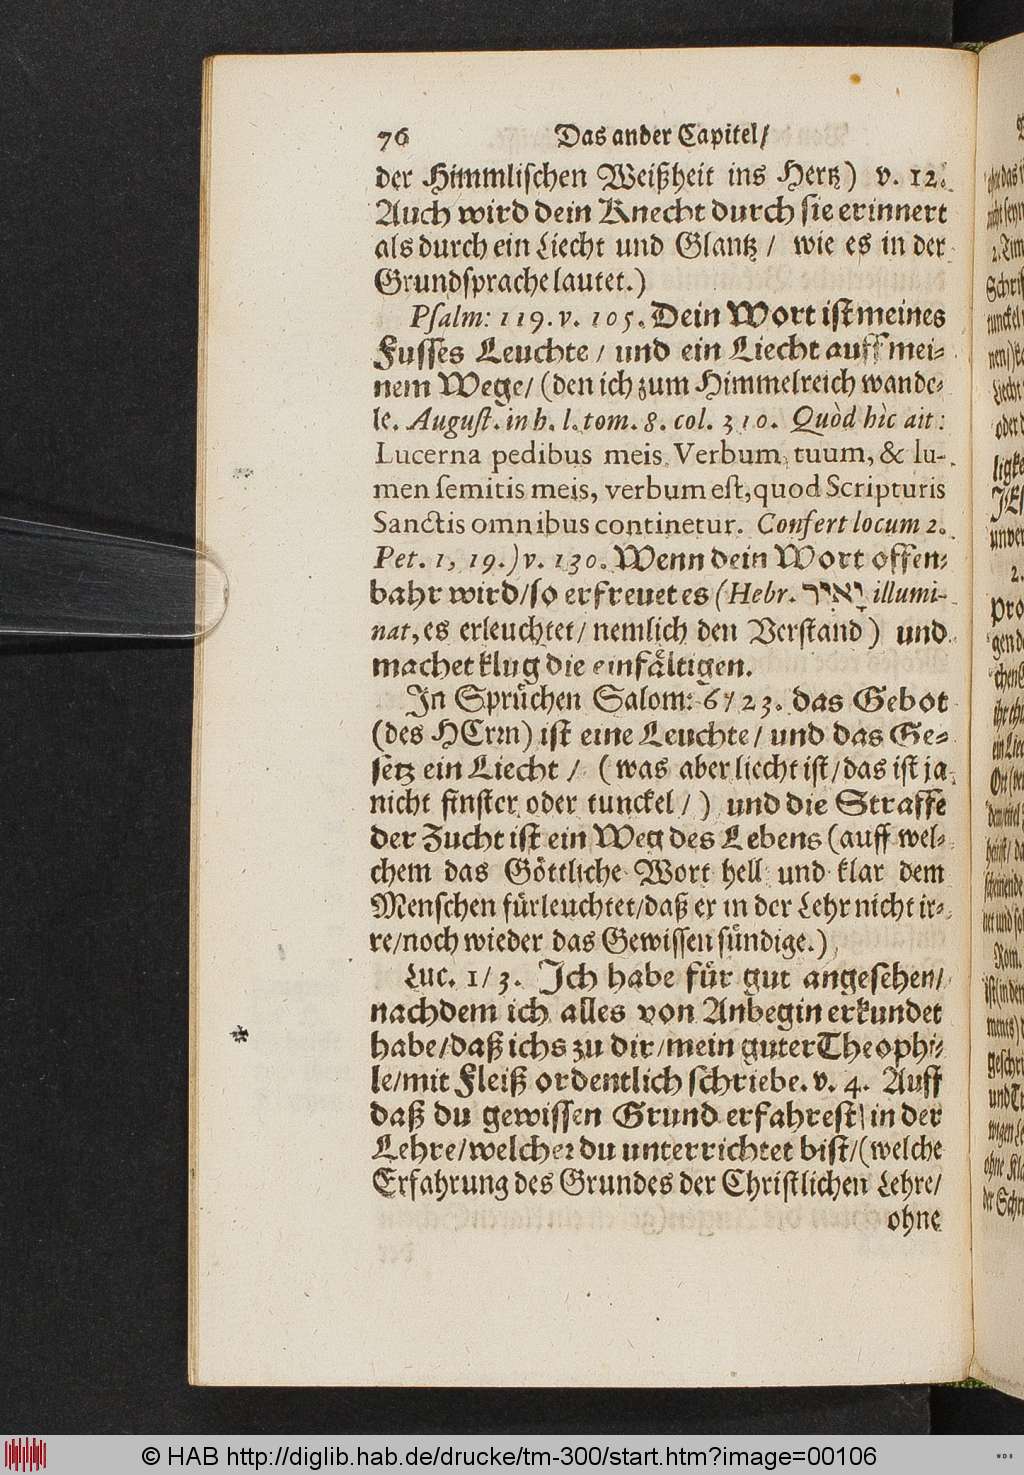 76 Das ander Capitel/
der Himmlischen Weißheit ins Hertz) v. 12.
Auch wird dein Knecht durch sie erinnert
als durch ein Liecht und Glantz / wie es in der
Grundsprache lautet.)
Psalm: 119. v. 105. Dein Wort ist meines
Fusses Leuchte / und ein Liecht auff mei-
nem Wege/ (den ich zum Himmelreich wande-
le. August. in h. l. tom. 8. col. 310. Quòd hìc ait:
Lucerna pedibus meis Verbum tuum, & lu-
men semitis meis, verbum est, quod Scripturis
Sanctis omnibus continetur. Confert locum 2.
Pet. 1, 19.) v. 130. Wenn dein Wort offen-
bahr wird/so erfreuet es (Hebr. יָאִיר illumi-
nat, es erleuchtet/ nemlich den Verstand) und
machet klug die einfältigen.
In Sprüchen Salom: 6/ 23. das Gebot
(des HErrn) ist eine Leuchte / und das Ge-
setz ein Liecht / (was aber liecht ist/das ist ja
nicht finster oder tunckel /) und die Straffe
der Zucht ist ein Weg des Lebens (auff wel-
chem das Göttliche Wort hell und klar dem
Menschen fürleuchtet/daß er in der Lehr nicht ir-
re/noch wieder das Gewissen sündige.)
Luc. 1/ 3. Ich habe für gut angesehen/
nachdem ich alles von Anbegin erkundet
habe/daß ichs zu dir/mein guter Theophi-
le/mit Fleiß ordentlich schriebe. v. 4. Auff
daß du gewissen Grund erfahrest/ in der
Lehre/welcher du unterrichtet bist/ (welche
Erfahrung des Grundes der Christlichen Lehre/
ohne
© HAB http://diglib.hab.de/drucke/tm-300/start.htm?image=00106